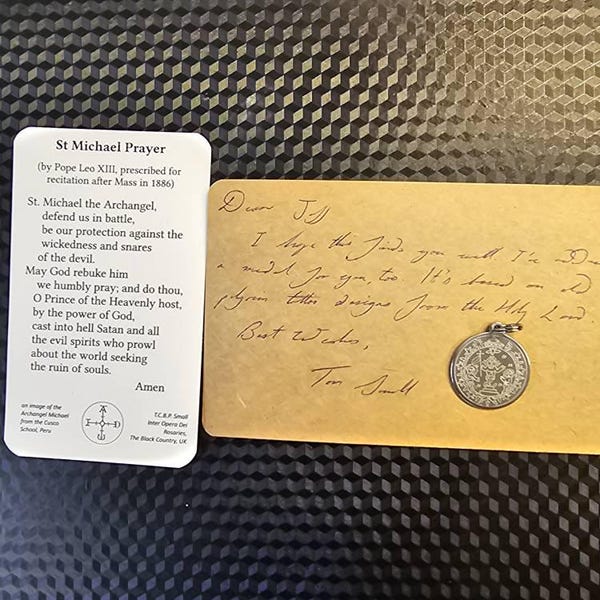 St Michael Prayer
(by Pope Leo XIII, prescribed for
recitation after Mass in 1886)
St. Michael the Archangel,
defend us in battle,
be our protection against the
wickedness and snares
of the devil.
May God rebuke him
we humbly pray; and do thou,
O Prince of the Heavenly host,
by the power of God,
cast into hell Satan and all
the evil spirits who prowl
about the world seeking
the ruin of souls.
Amen
an image of the
Archangel Michael
from the Cusco
School, Peru
T.C.B.P. Small
Inter Opera Dei
Rosaries,
The Black Country, UK
Dear Jeff
I hope this finds you well. I've
a medal for you, too. It's based on
pilgrim tattoo designs from the Holy Land.
Best Wishes,
Tom Small